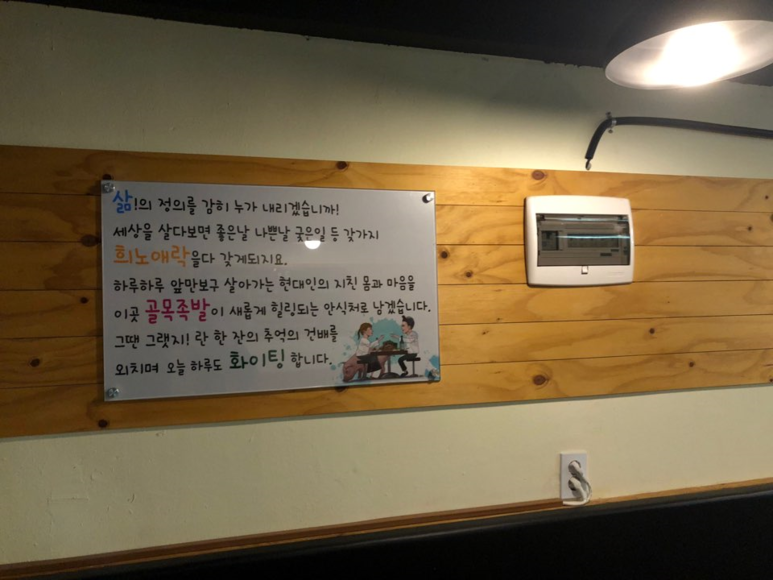 삶!의 정의를 감히 누가 내리겠습니까!
세상을 살다보면 좋은날 나쁜날 궂은일 등 갖가지
희노애락을다 갖게되지요.
하루하루 앞만보구 살아가는 현대인의 지친 몸과 마음을
이곳 골목족발이 새롭게 힐링되는 안식처로 남겠습니다.
그땐 그랬지! 란 한 잔의 추억의 건배를
외치며 오늘 하루도 화이팅 합니다.